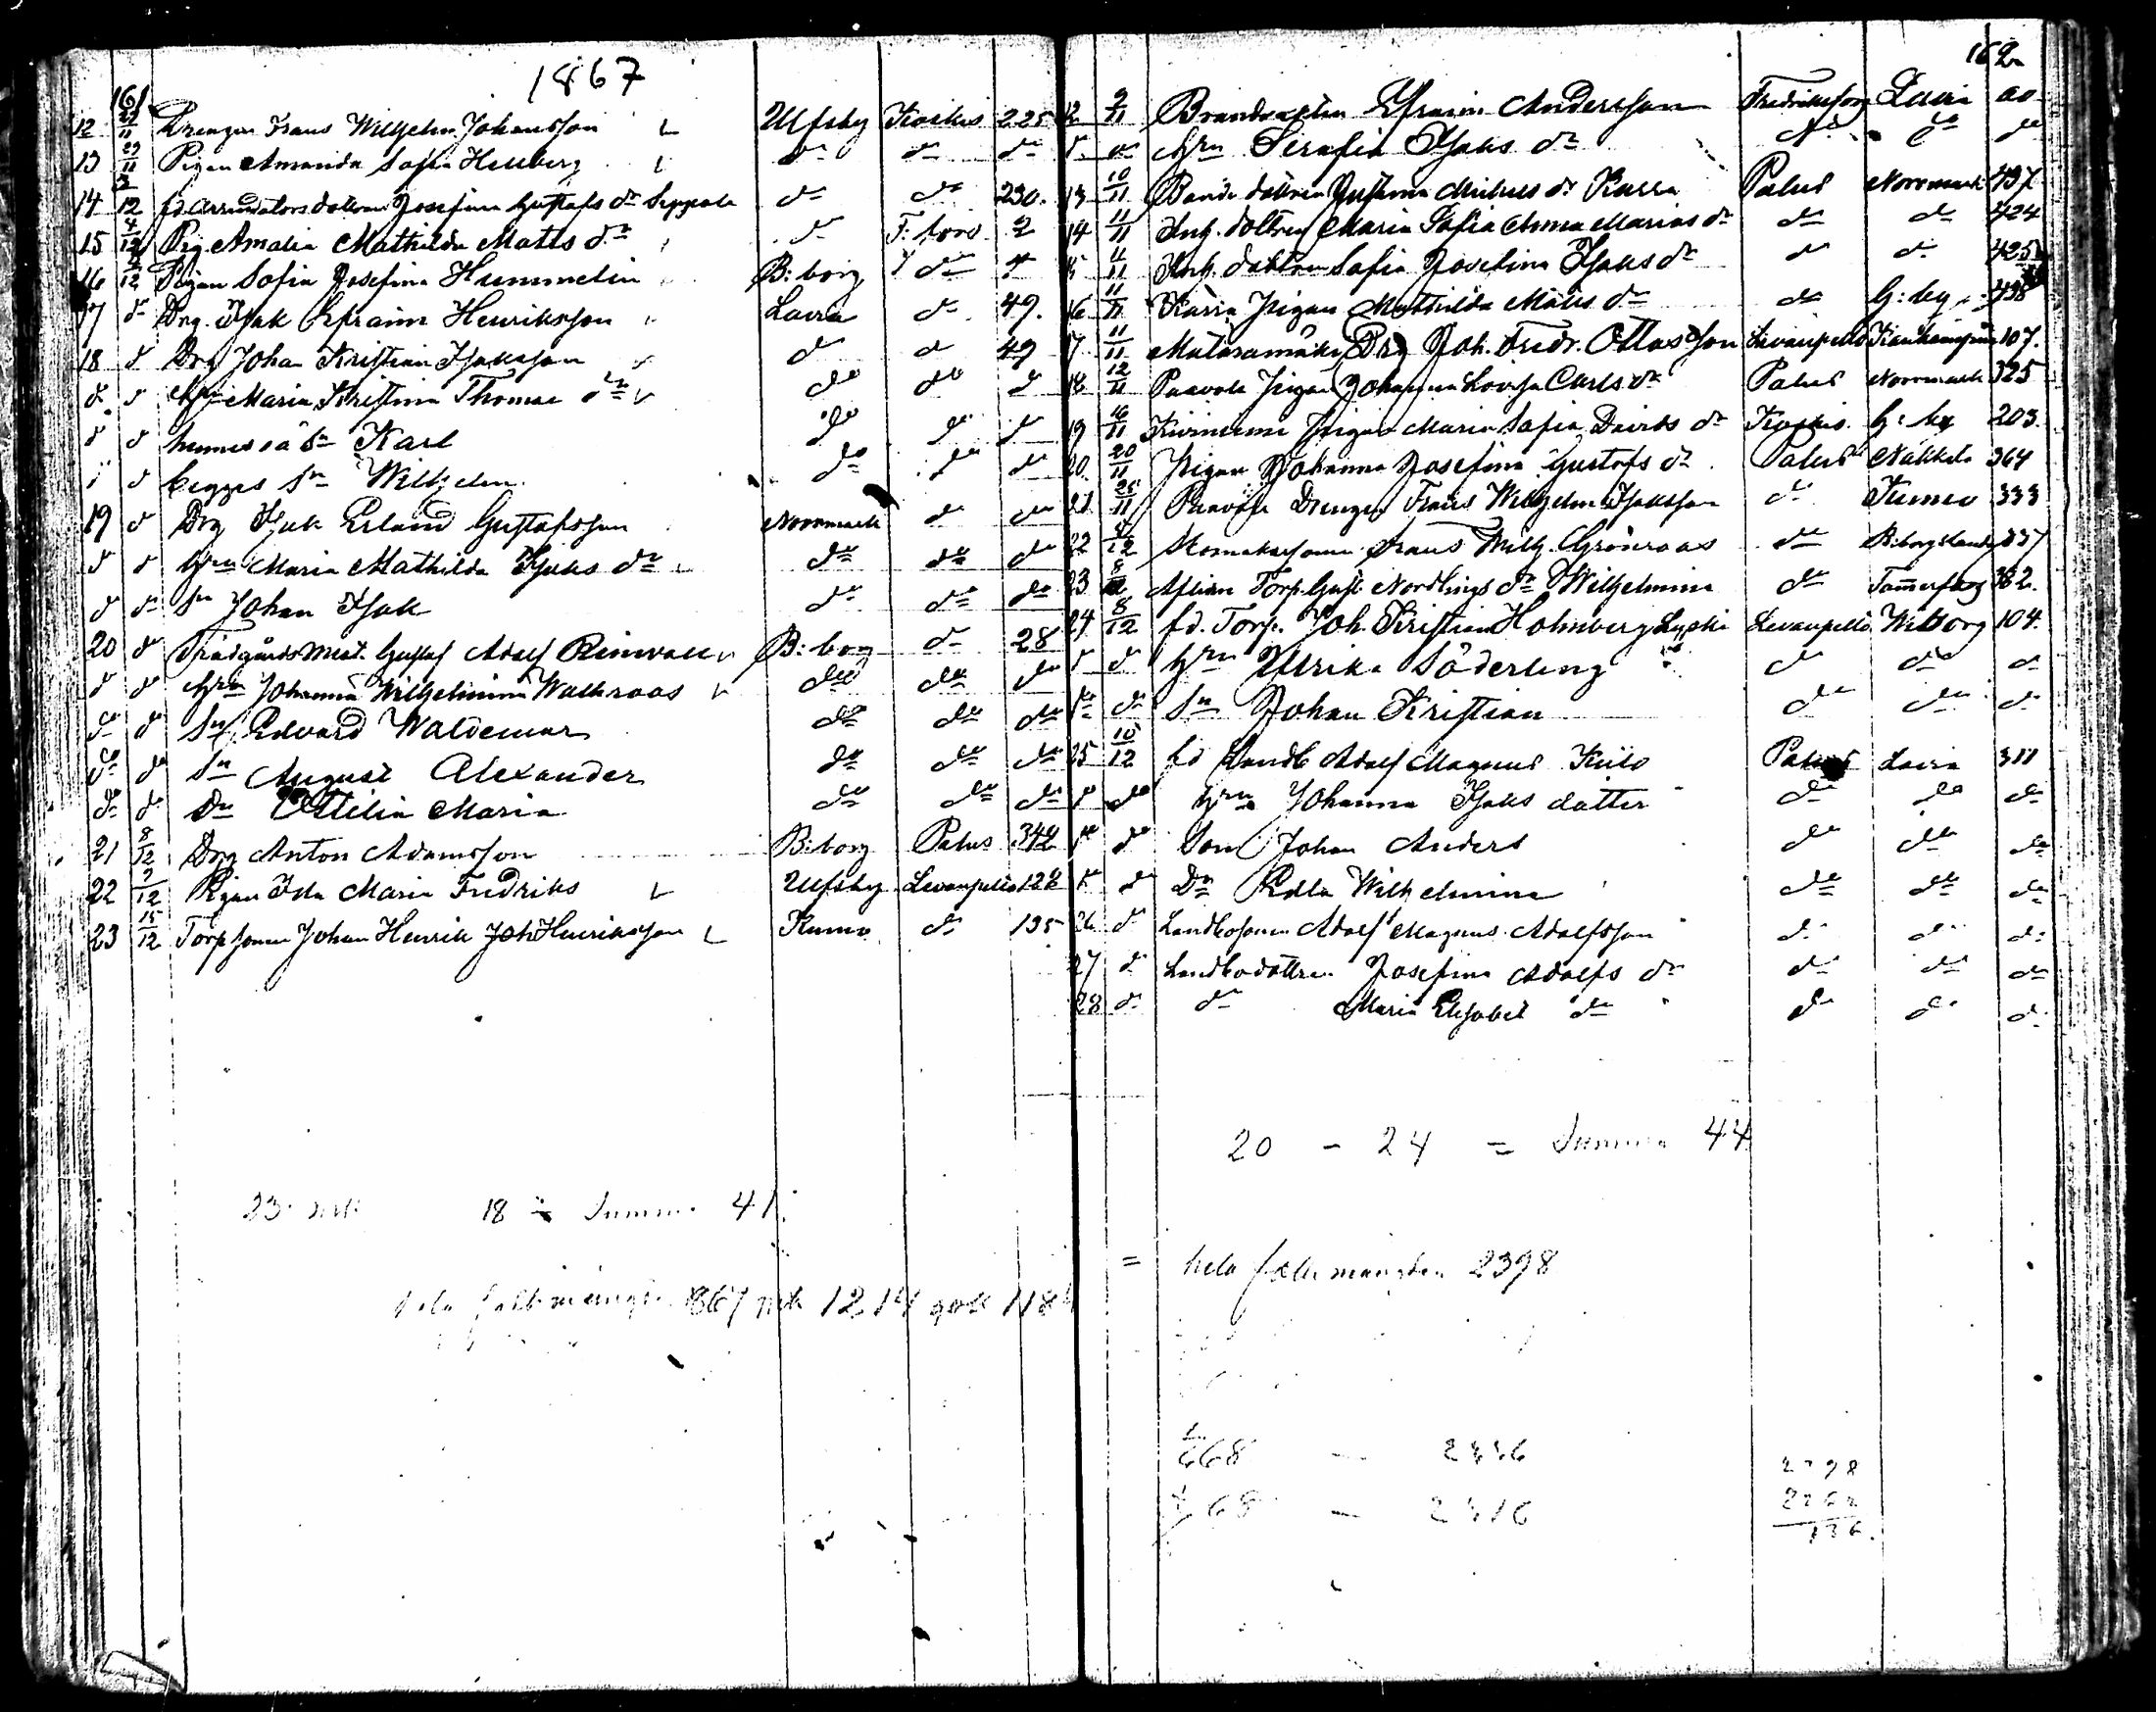 161
1867
12 27/11 Drengen Frans Wilhelm Johansson Ulfsby Koskis 225
13 29/11 Pigan Amanda Sofia Hellberg do do do
14 3/12 fd Arrendators dottren Josefina Gustafs dr Seppälä do do 230.
15 4/12 Pig. Amalia Mathilda Matts dr do F. torg 2
16 4/12 Pigan Sofia Josefina Hummelin B:borg do 4
17 do Drg. Isak Efraim Henriksson Lavia do 49.
18 do Drg Johan Kristian Isaksson do do 49
do do Hu Maria Kristina Thomae dr do do do
do do hennes oä Sn Karl do do do
do do begges Sn Wilhelm do do do
19 do Drg Isak Erland Gustafsson Norrmark do do
do do Hru Maria Mathilda Isaks dr do do do
do do Sn Johan Isak do do do
20 do Trädgårds Mäst. Gustaf Adolf Reinvall B:borg do 28
do do Hru Johanna Wilhelmina Wallroos do do do
do do Sn Edvard Waldemar do do do
do do Sn August Alexander do do do
do do Dr Ottilia Maria do do do
21 8/12 Drg Anton Adamsson B:borg Palus 342
22 9/12 Pigan Ida Maria Fredriks Ulfsby Levanpelto 122
23 15/12 Torp Sonen Johan Henrik Joh Henriksson Kumo do 135
23 mk 18 = Summa 41.
hela folkmängden 1867 mk 1214 qvk 1184
162
12 9/11 Brandvakten Efraim Andersson Fredriksforg Lavia 60
do do Hru Serafia Isaks dr do do do
13 10/11 Bonde dottren Gustava Michels dr Karra Palus Norrmark 437
14 11/11 Inh. dottren Maria Sofia Anna Marias dr do do 424
15 11/11 Inh. dottren Sofia Josefina Isaks dr do do 425
16 11/11 Karra Pigan Mathilda Matts dr do G:by 438
17 11/11 Mataramäki Drg Joh. Fredr. Ottosson Levanpelto Kankaanpää 107.
18 12/11 Paavola Pigan Johanna Lovisa Carls dr Palus Norrmark 325
19 16/11 Kivinieme Pigan Maria Sofia Davids dr Koskis G:by 203
20. 20/11 Pigan Johanna Josefina Gustafs dr Palus Nakkila 364
21 25/11 Paavola Drengen Frans Wilhelm Isaksson do Kumo 333
22 4/12 Skomakarsonen Frans Wilh. Grönroos do B:borg Lands 337
23 8/12 Aflidn Torp. Gust Nordlings dr Wilhelmina do Tammerfors 382.
24 8/12 fd. Torp. Joh. Kristian Holmberg Lycki Levanpelto Wiborg 104.
do do Hru Ulrika Söderling do do do
do do Sn Johan Kristian do do do
25 10/12 fd Landb Adolf Magnus Knilo Palus Lavia 311
do do Hru Johanna Isaks dotter do do do
do do Son Johan Anders do do do
do do Dr Edla Wilhelmina do do do
26 do Landbosonen Adolf Magnus Adolfsson do do do
27 do Landbodottren Josefina Adolfs dr do do do
28 do do Maria Elisabet dr do do do
20 - 24 = Summa 44
= hela folkmängden 2398
668 — 2336
68 — 2316
2398
2262
136.